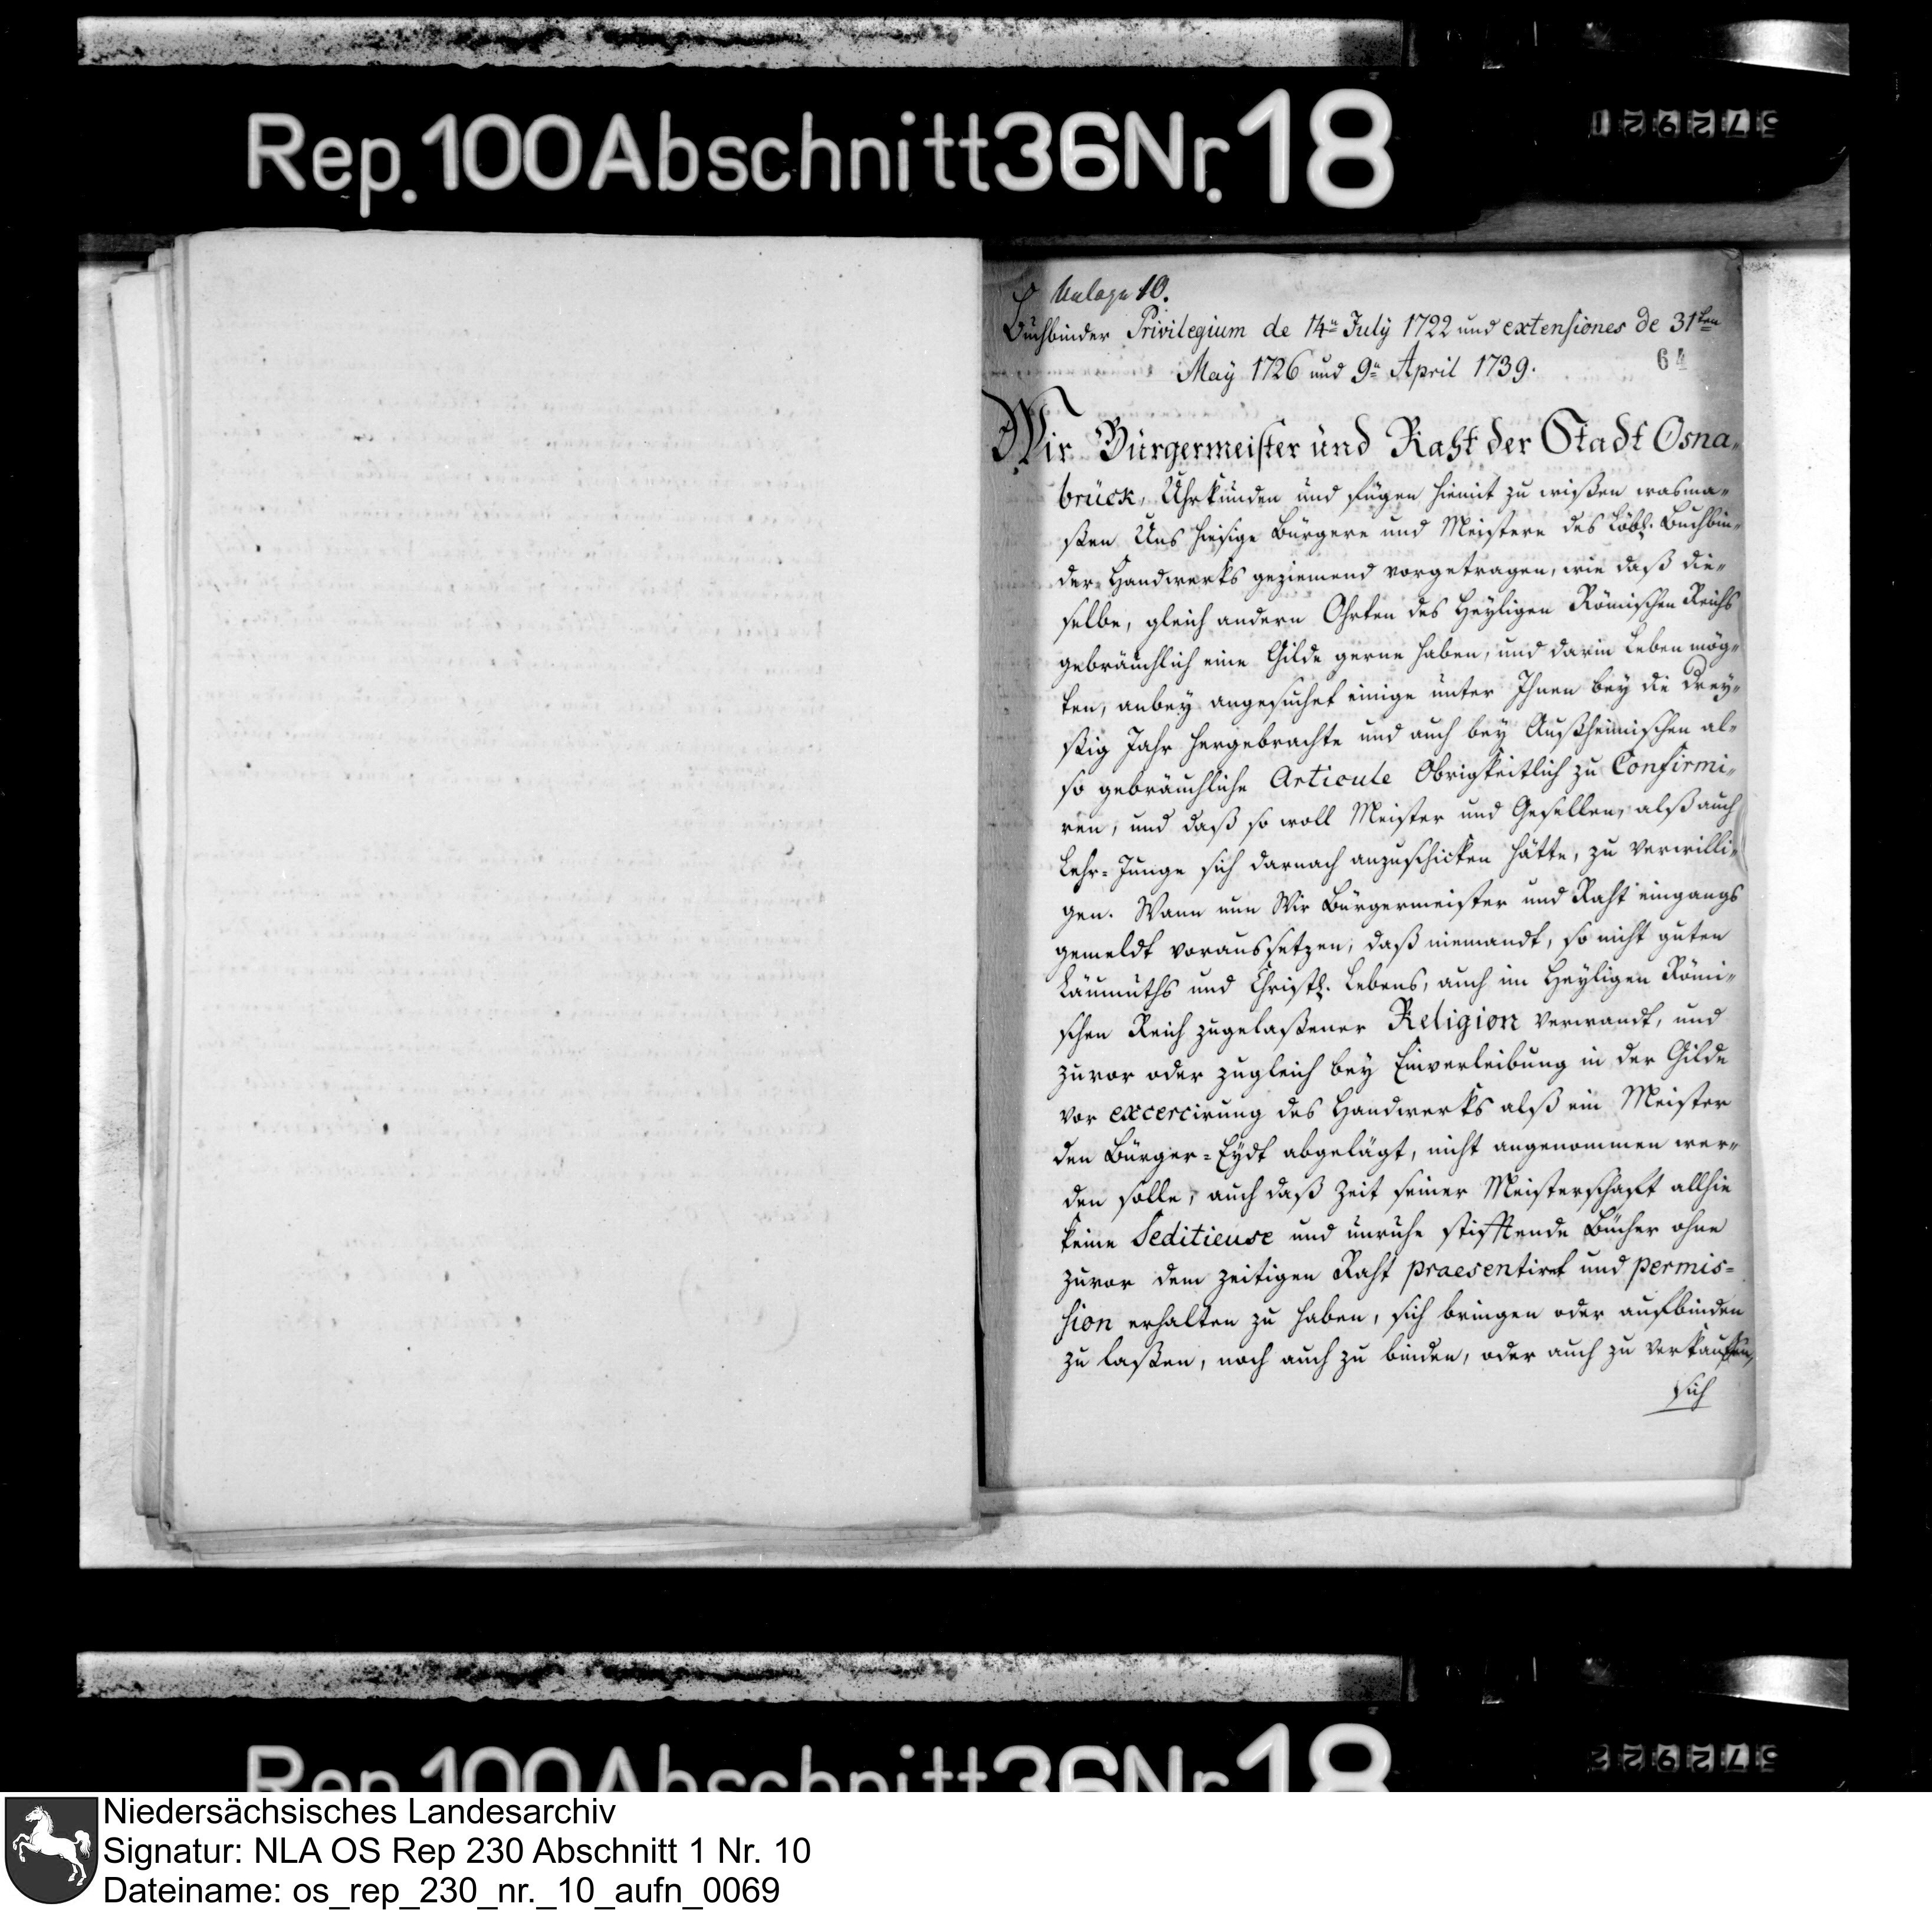 Rep. 100 Abschnitt 36 Nr. 18
Anlage 10.
Buchbinder Privilegium de 14n July 1722 und extensiones de 31ten
May 1726 und 9n April 1739.
64
Wir Bürgermeister und Raht der Stadt Osna-
brück, Uhrkunden und fügen hiemit zu wißen wasma-
ßen Uns hiesige Bürgere und Meistere des Löbl. Buchbin-
der-Handwerks geziemend vorgetragen, wie daß die-
selbe, gleich andern Ohrten des Heyligen Römischen Reichs
gebräuchlich eine Gilde gerne haben, und darin Leben mög-
ten, anbey angesuchet einige unter Ihnen bey die drey-
ßig Jahr hergebrachte und auch bey Außheimischen al-
so gebräuchliche Articule Obrigkeitlich zu Confirmi-
ren, und daß so woll Meister und Gesellen, alß auch
Lehr-Junge sich darnach anzuschicken hätte, zu verwilli-
gen. Wann nun Wir Bürgermeister und Raht eingangs
gemeldt voraussetzen, daß niemandt, so nicht guten
Läumuths und Christl. Lebens, auch im Heyligen Römi-
schen Reich zugelaßener Religion verwandt, und
zuvor oder zugleich bey Einverleibung in der Gilde
vor excercirung des Handwerks alß ein Meister
den Bürger-Eydt abgelägt, nicht angenommen wer-
den solle, auch daß Zeit seiner Meisterschaft allhie
keine Seditieuse und unruhe stifftende Bücher ohne
zuvor dem zeitigen Raht praesentiret und permis-
sion erhalten zu haben, sich bringen oder aufbinden
zu laßen, noch auch zu binden, oder auch zu verkauffen,
sich
Rep. 100 Abschnitt 36 Nr. 18
Niedersächsisches Landesarchiv
Signatur: NLA OS Rep 230 Abschnitt 1 Nr. 10
Dateiname: os_rep_230_nr._10_aufn_0069